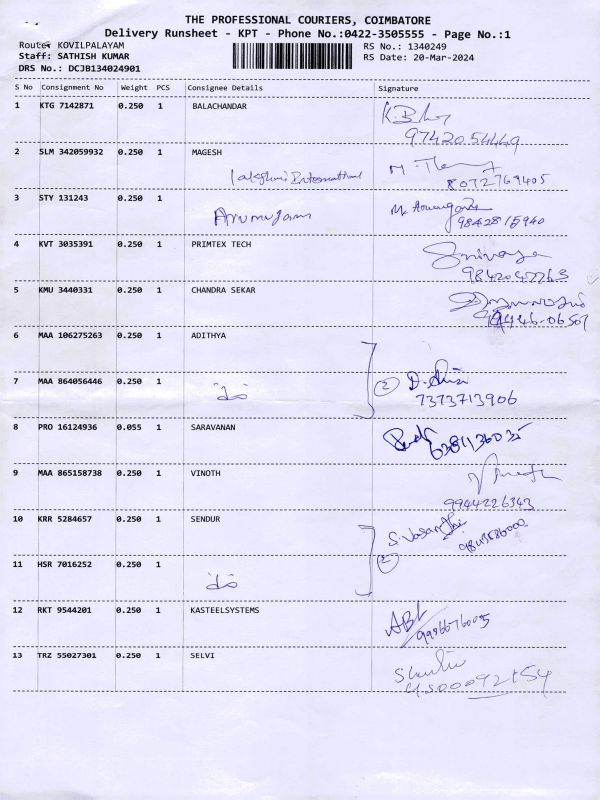 THE PROFESSIONAL COURIERS, COIMBATORE
Delivery Runsheet - KPT - Phone No.:0422-3505555 - Page No.:1
Route: KOVILPALAYAM
RS No.: 1340249
Staff: SATHISH KUMAR
RS Date: 20-Mar-2024
DRS No.: DCJB134024901
S No Consignment No Weight PCS Consignee Details Signature
1 KTG 7142871 0.250 1 BALACHANDAR
9742054449
2 SLM 342059932 0.250 1 MAGESH
Lakshmi International
8072769405
3 STY 131243 0.250 1
Arumugam
9842815940
4 KVT 3035391 0.250 1 PRIMTEX TECH
9842042263
5 KMU 3440331 0.250 1 CHANDRA SEKAR
6 MAA 106275263 0.250 1 ADITHYA
7 MAA 864056446 0.250 1
2
7373713906
8 PRO 16124936 0.055 1 SARAVANAN
9 MAA 865158738 0.250 1 VINOTH
9944226343
10 KRR 5284657 0.250 1 SENDUR
S. Vasanthi
11 HSR 7016252 0.250 1
2
12 RKT 9544201 0.250 1 KASTEELSYSTEMS
13 TRZ 55027301 0.250 1 SELVI